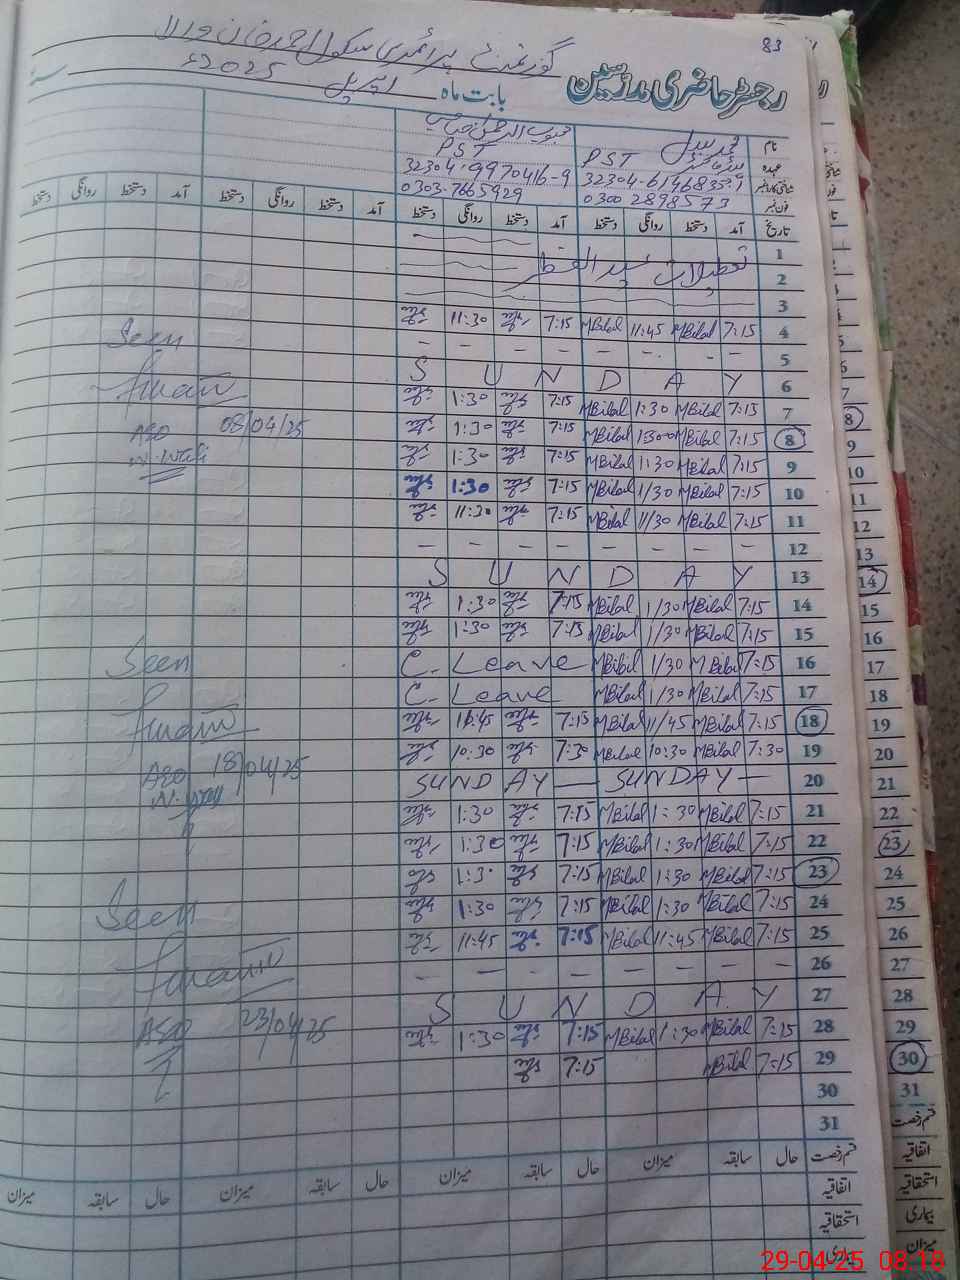 83
گورنمنٹ پرائمری سکول
رجسٹر حاضری مدرسین بابت ماہ اپریل 2025ء
نام محمد بلال محبوب الرحمن
عہدہ PST PST
شناختی کارڈ نمبر 32304-6146835 32304-9970416-9
فون نمبر 0300 2898573 0303-7665929
تاریخ آمد دستخط روانگی دستخط آمد دستخط روانگی دستخط آمد دستخط روانگی دستخط آمد دستخط روانگی دستخط
1
2 تعطیلات عید الفطر
3
4 7:15 MBilal 11:45 MBilal 7:15 11:30
5 - - - - - - - -
6 S U N D A Y
7 7:15 MBilal 1:30 MBilal 7:15 1:30
8 7:15 MBilal 1:30 MBilal 7:15 1:30
9 7:15 MBilal 1:30 MBilal 7:15 1:30
10 7:15 MBilal 1/30 MBilal 7:15 1:30
11 7:15 MBilal 11/30 MBilal 7:15 11:30
12 - - - - - - - -
13 S U N D A Y
14 7:15 MBilal 1/30 MBilal 7:15 1:30
15 7:15 MBilal 1/30 MBilal 7:15 1:30
16 7:15 MBilal 1/30 MBilal C. Leave
17 7:15 MBilal 1/30 MBilal C. Leave
18 7:15 MBilal 11/45 MBilal 7:15 11:45
19 7:30 MBilal 10:30 MBilal 7:30 10:30
20 SUNDAY — SUNDAY —
21 7:15 MBilal 1:30 MBilal 7:15 1:30
22 7:15 MBilal 1:30 MBilal 7:15 1:30
23 7:15 MBilal 1:30 MBilal 7:15 1:30
24 7:15 MBilal 1:30 MBilal 7:15 1:30
25 7:15 MBilal 11:45 MBilal 7:15 11:45
26 - - - - - - - -
27 S U N D A Y
28 7:15 MBilal 1:30 MBilal 7:15 1:30
29 7:15 MBilal 7:15
30
31
قسم رخصت حال سابقہ میزان حال سابقہ میزان حال سابقہ میزان حال سابقہ میزان
اتفاقیہ
استحقاقیہ
بیماری
Seen
AEO 08/04/25
Seen
AEO 18/04/25
Seen
AEO 23/04/25
8
9
10
11
12
13
14
15
16
17
18
19
20
21
22
23
24
25
26
27
28
29
30
31
قسم رخصت
اتفاقیہ
استحقاقیہ
بیماری
میزان
29-04-25 08:18